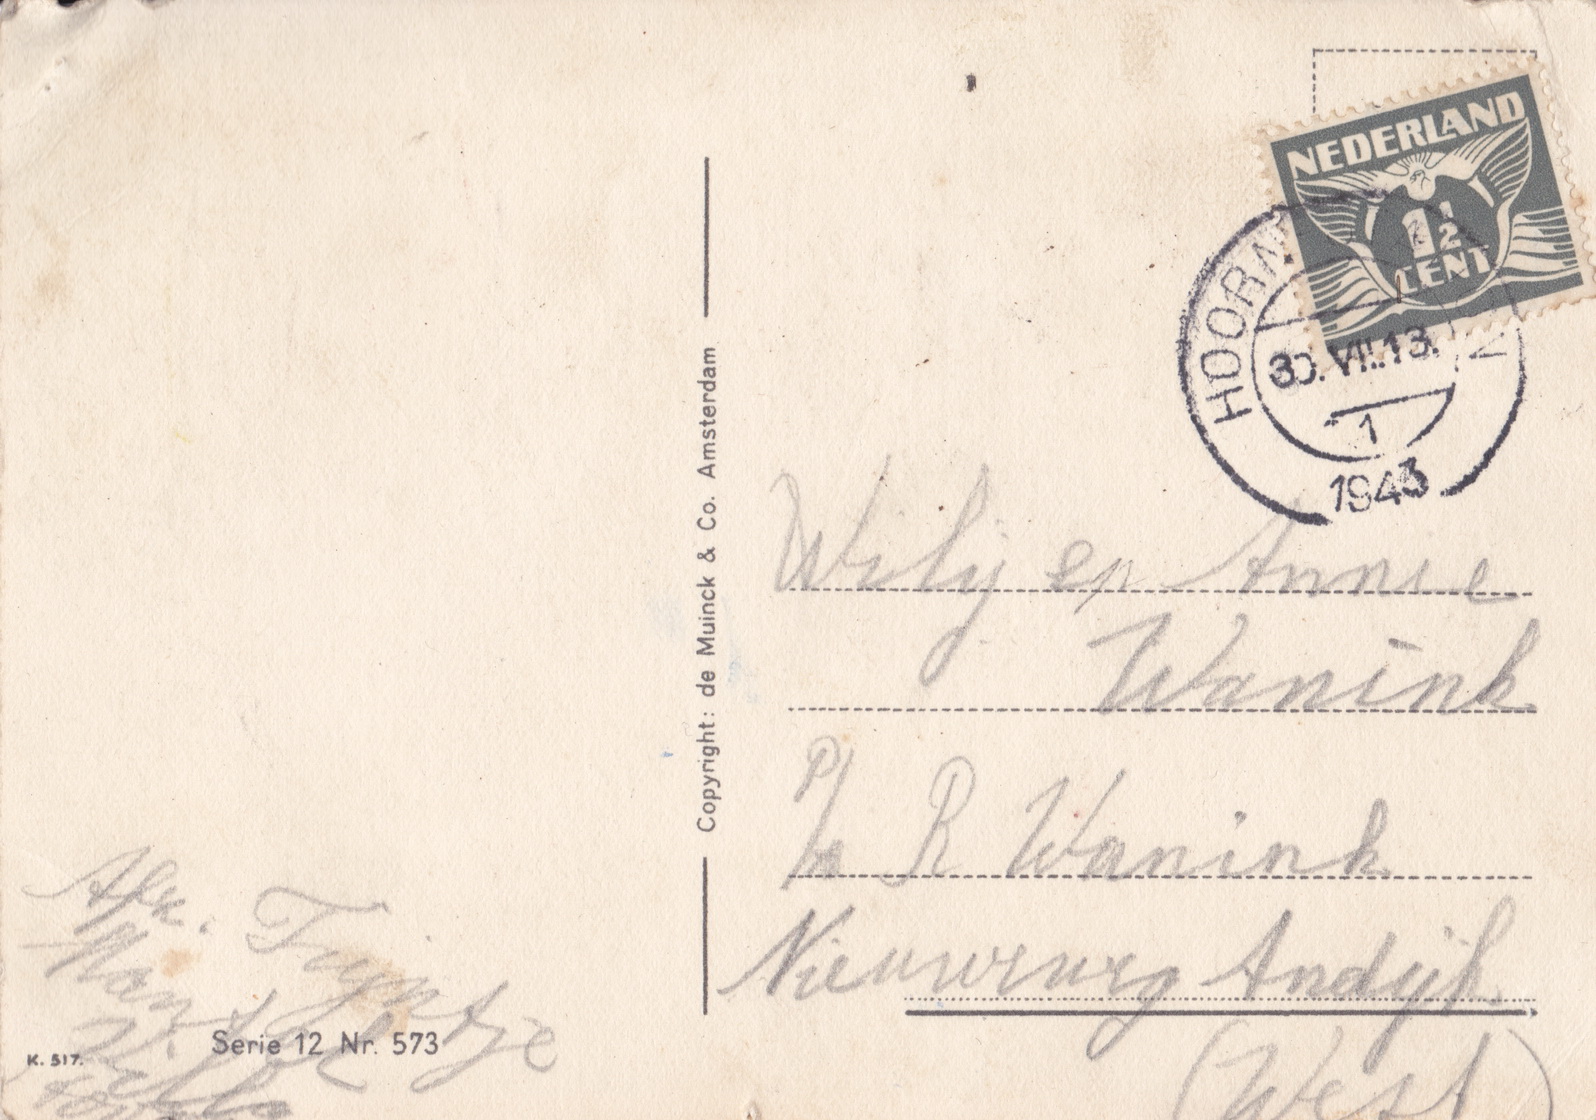 NEDERLAND
1½
CENT
HOORN
30.VII.13.
1
1943
Copyright: de Muinck & Co. Amsterdam
Wily en Annie
Wanink
p/a R Wanink
Andijk
(West)
Afz. Tryntje
Serie 12 Nr. 573
K. 517.